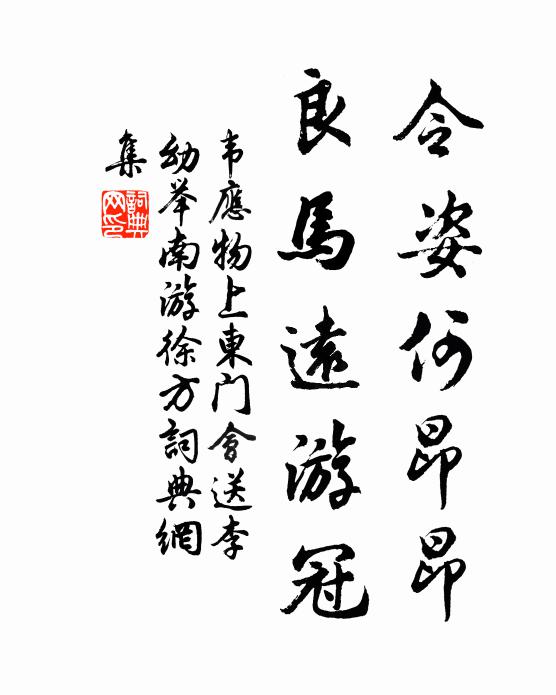 令姿何昂昂
良馬遠游冠
韦應物上東门會送李
幼举南游徐方詞典網
集
詞典网印